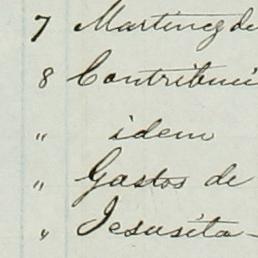 7 Martinez de
8 Contribuci
" idem
" Gastos de
" Jesusita-